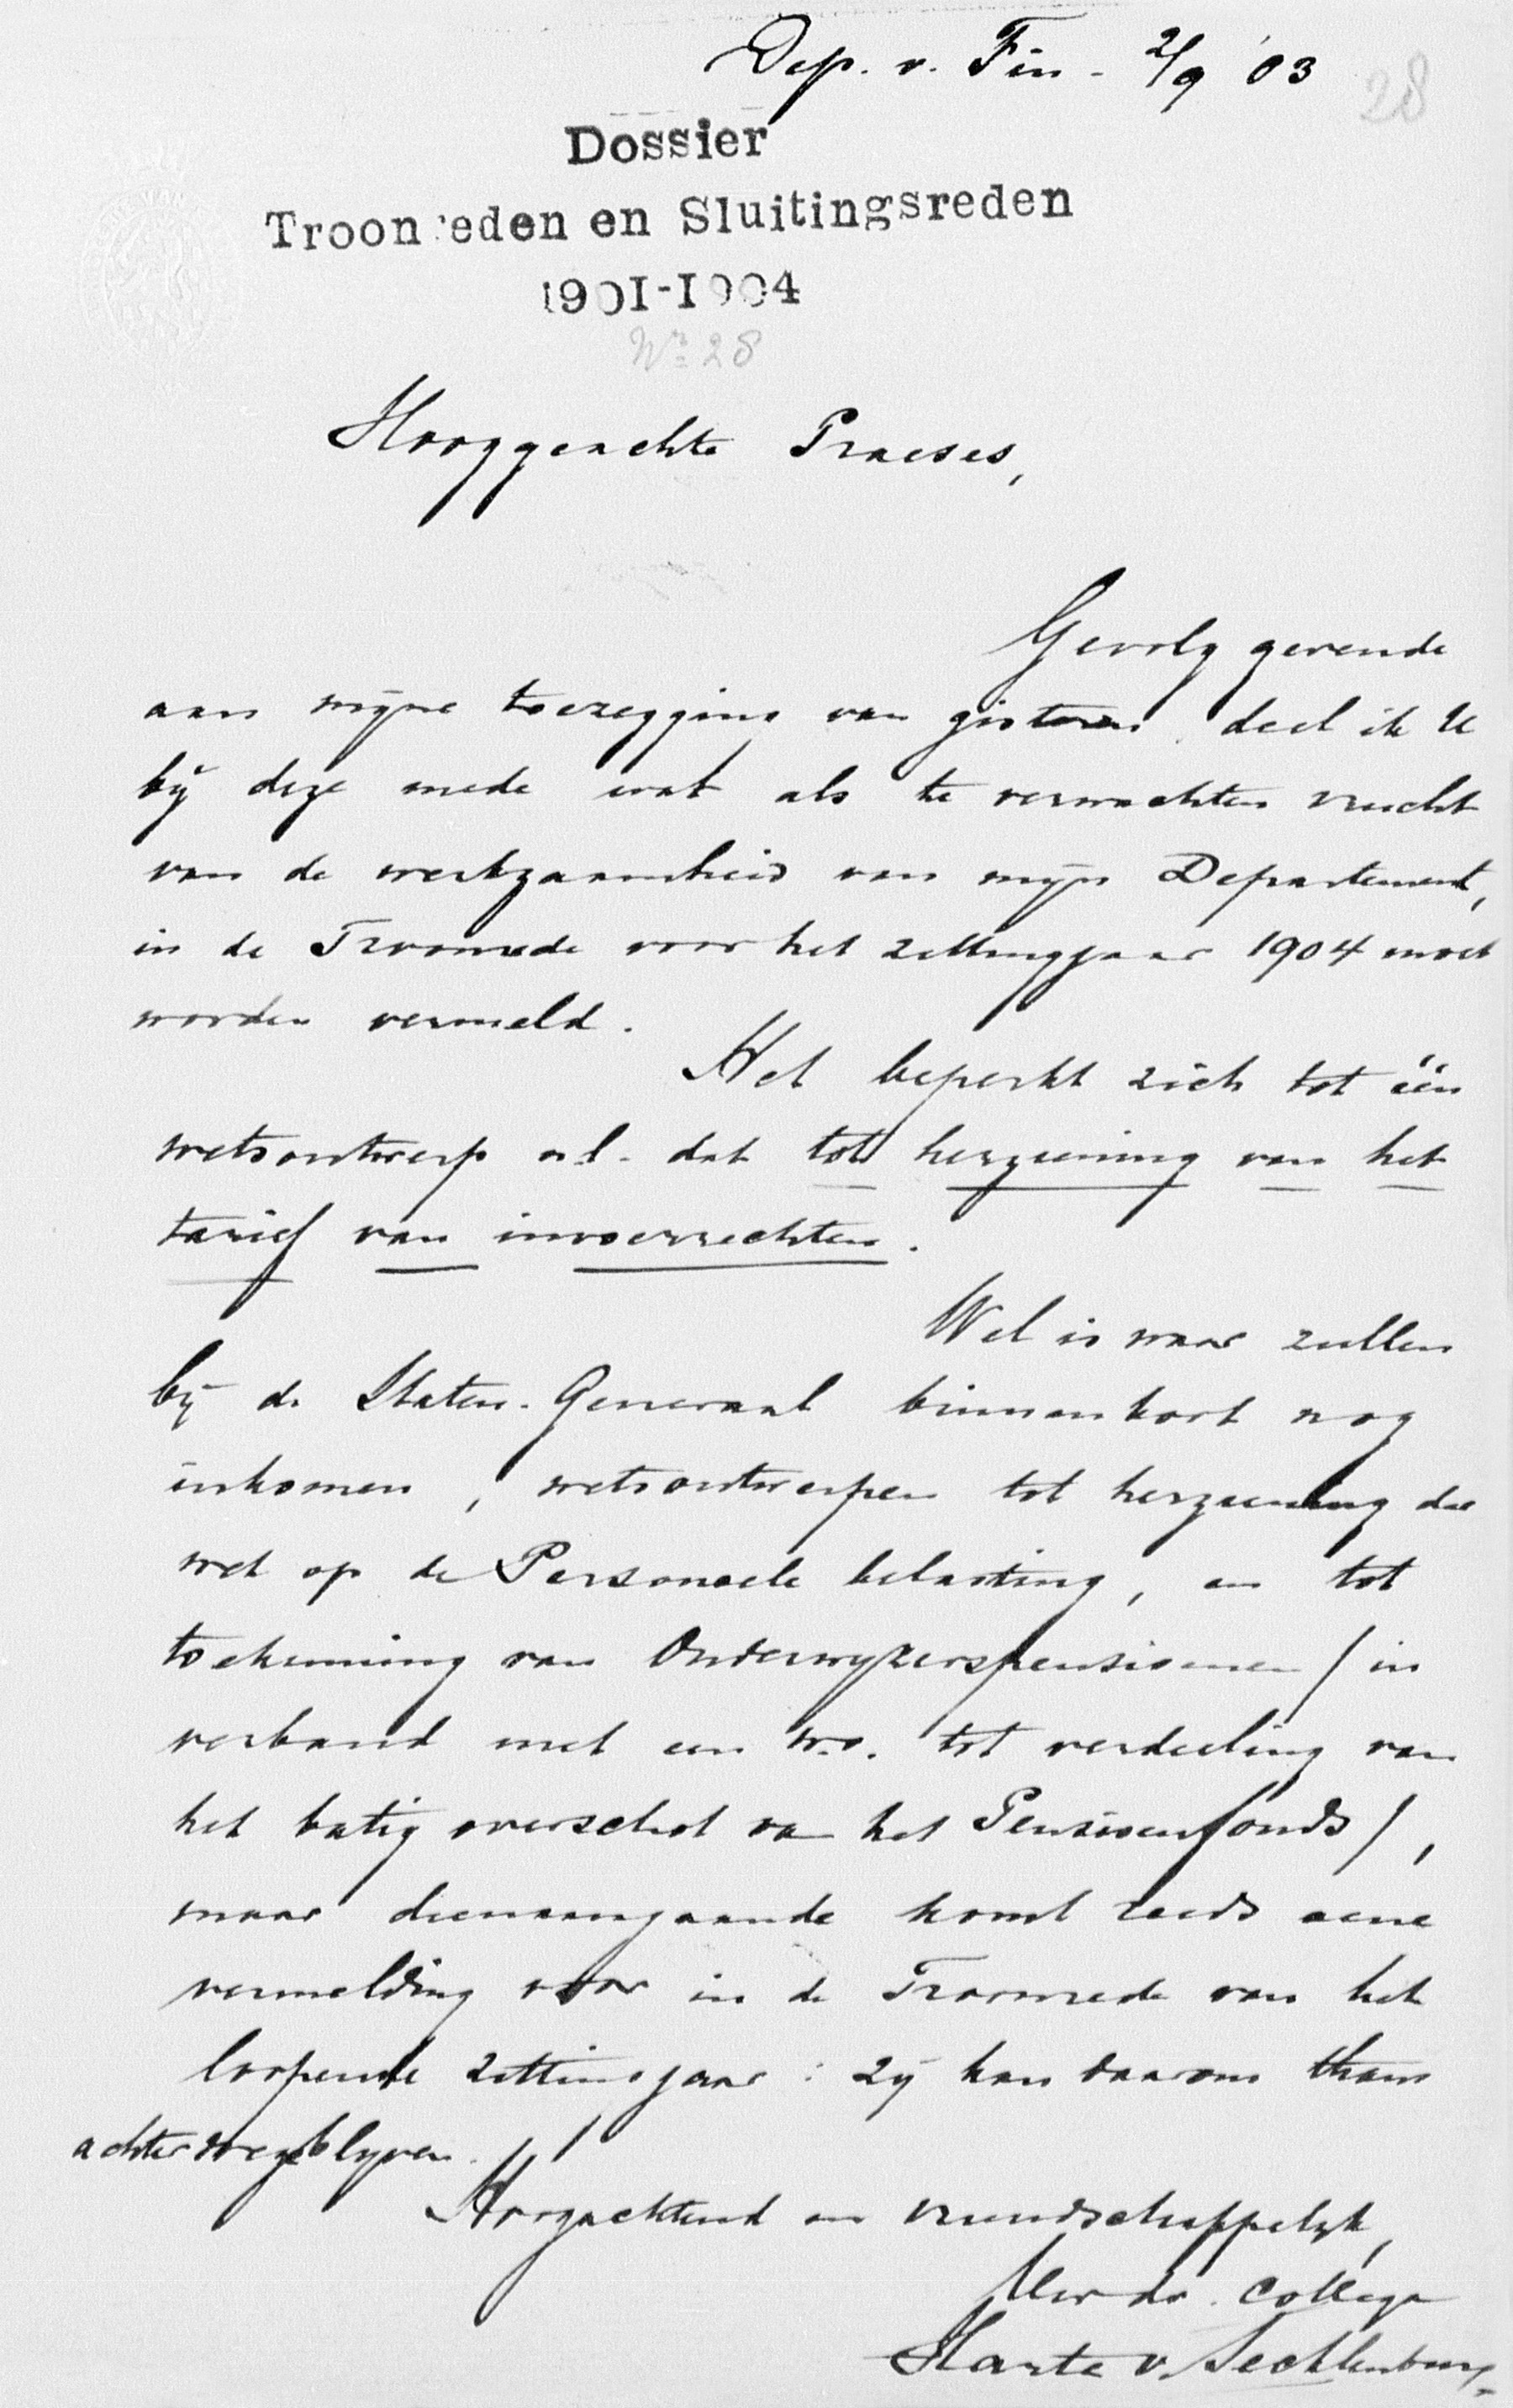 Dep. v. Fin - 2/9 '03
28
Dossier
Troonreden en Sluitingsreden
1901-1904
No 28
Hooggeachte Praeses,
Gevolg gevende
aan mijne toezegging van gisteren deel ik U
bij deze mede wat als te verwachten vrucht
van de werkzaamheid van mijn Departement,
in de Troonrede voor het zittingjaar 1904 moet
worden vermeld.
Het beperkt zich tot één
wetsontwerp n.l. dat tot herziening van het
tarief van invoerrechten.
Wel is waar zullen
bij de Staten-Generaal binnenkort nog
inkomen, wetsontwerpen tot herziening der
wet op de Personeele belasting, en tot
toekenning van Onderwijzerspensioenen / in
verband met een w.o. tot verdeeling van
het batig overschot van het Pensioenfonds /,
maar dienaangaande komt reeds eene
vermelding voor in de Troonrede van het
loopende zittingjaar : zij kan daarom thans
achterwege blijven.
Hoogachtend en vriendschappelijk,
Uw dr. Collega
Harte v. Tecklenburg